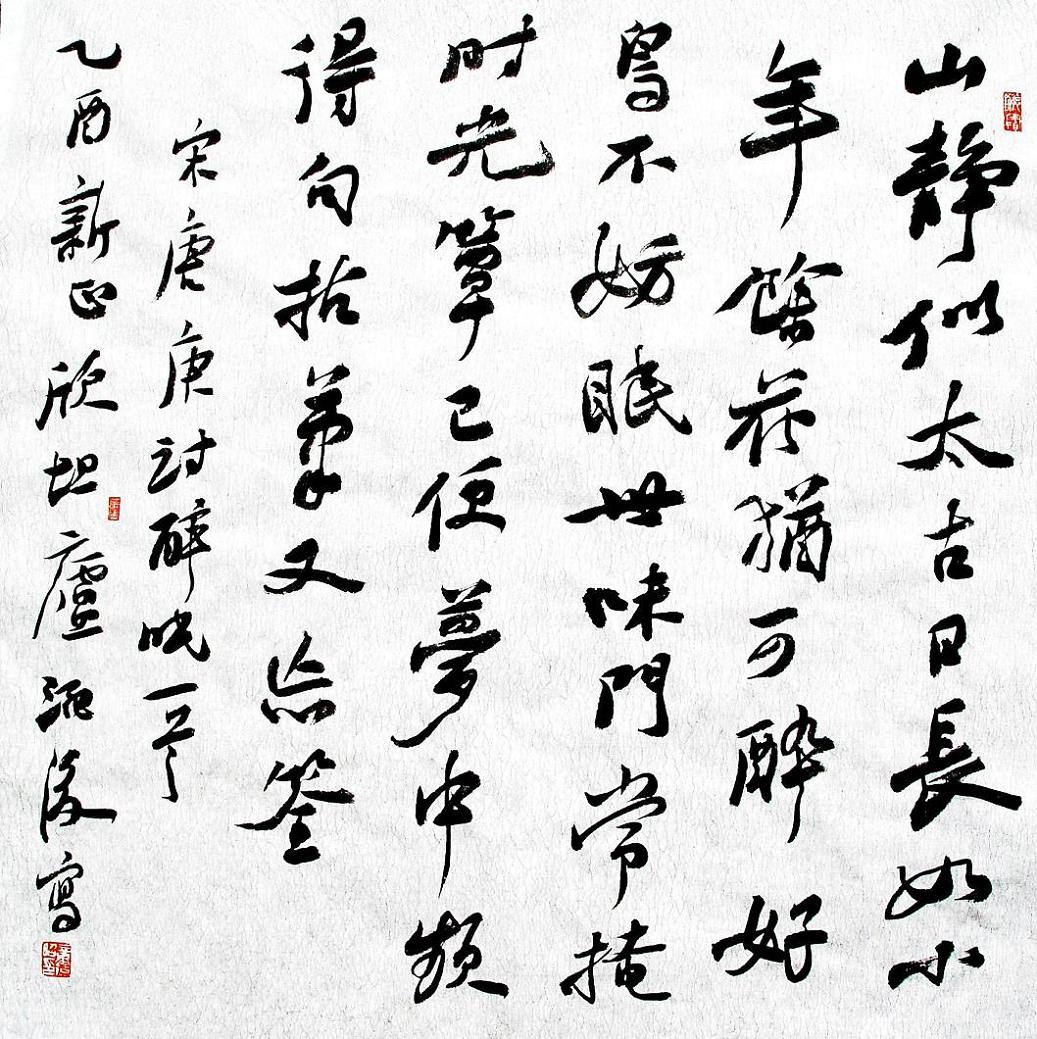 山静似太古日長如小
年餘花猶可醉好
鳥不妨眠世味門常掩
时光簟已便夢中頻
得句拈筆又忘筌
宋唐庚詩醉眠一首
乙酉新正欣坦廬酒後寫